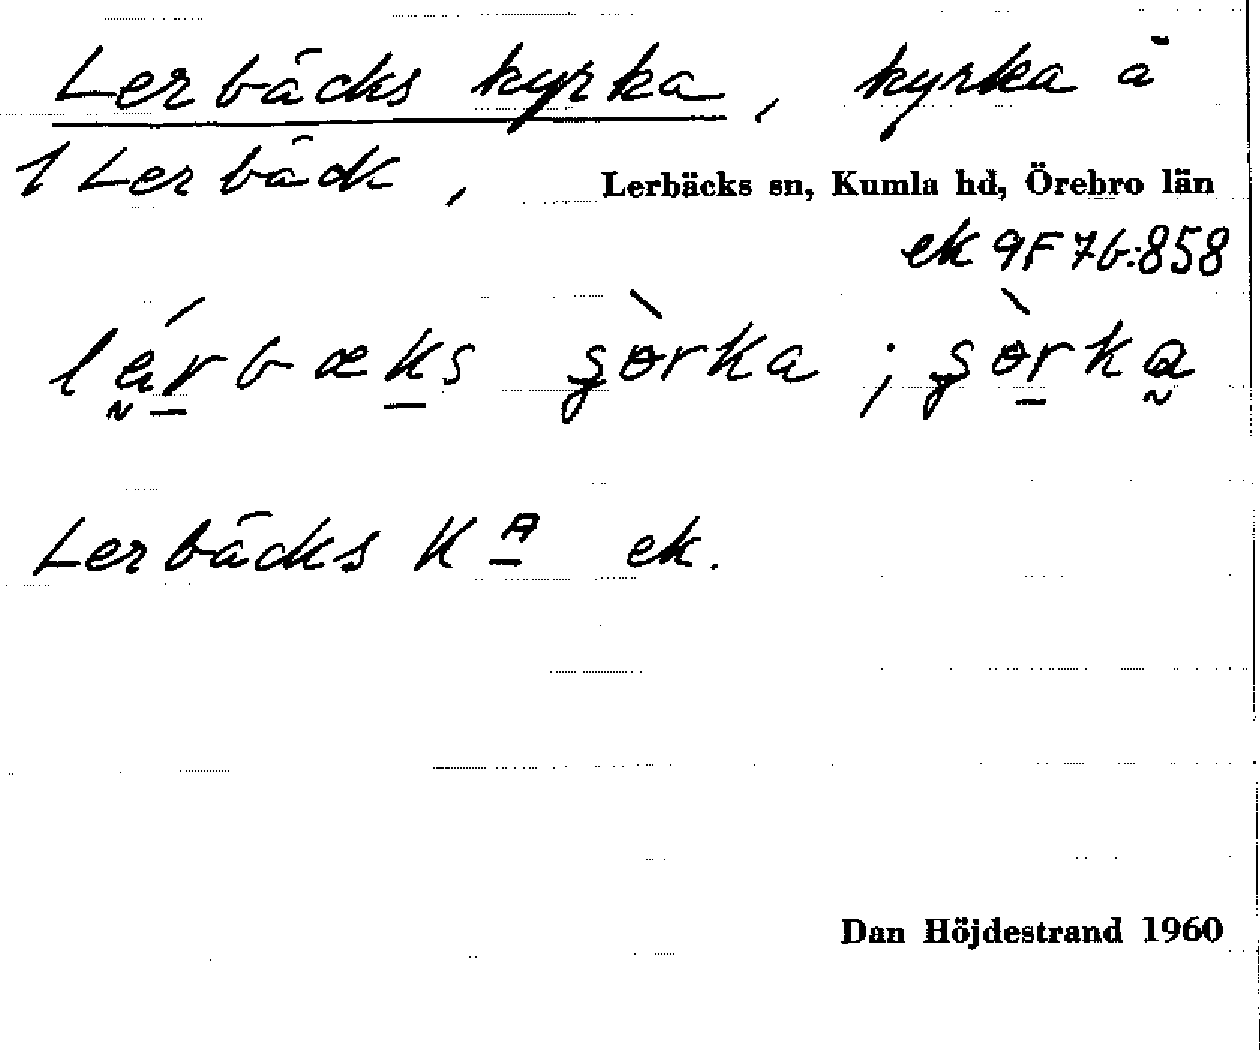 Lerbäcks kyrka, kyrka å
1 Lerbäck, Lerbäcks sn, Kumla hd, Örebro län
ek 9F 7b:858
lárbæks şòrka ; şòrka
Lerbäcks Kᴬ ek.
Dan Höjdestrand 1960